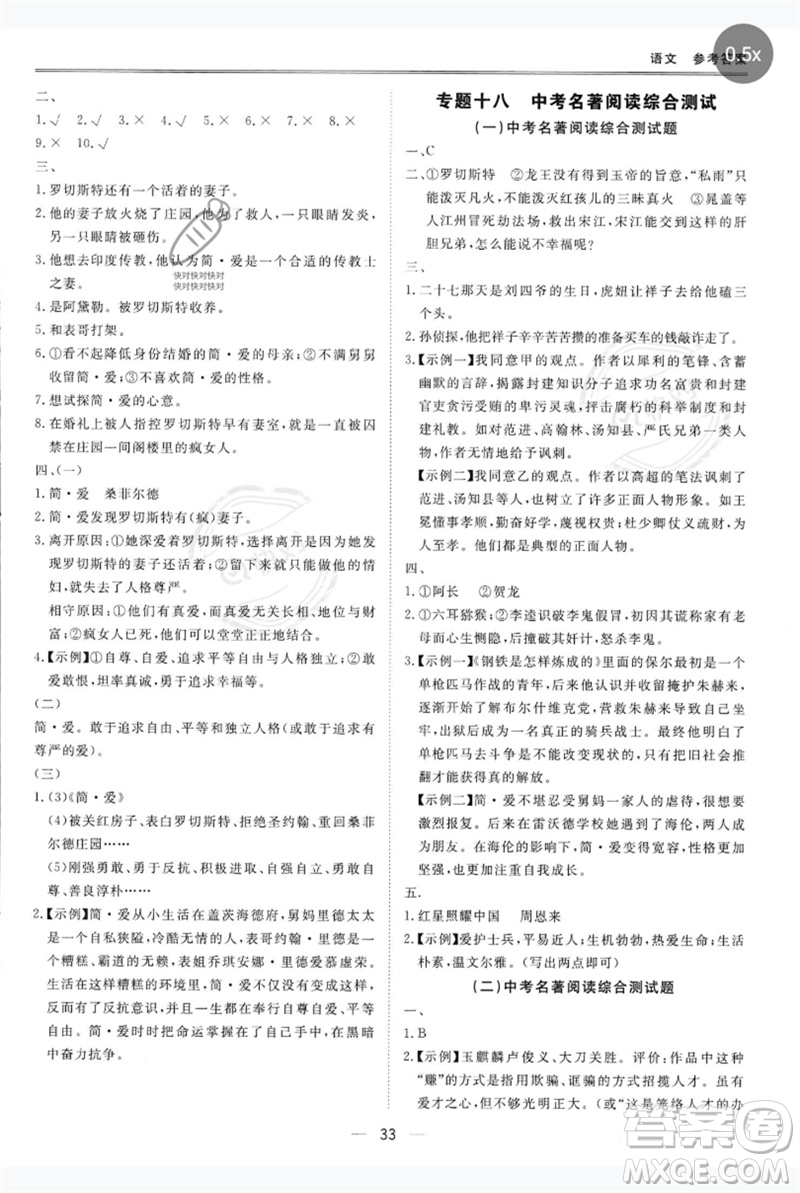 0.5x
语文 参考答案
二、
1.√ 2.√ 3.× 4.× 5.× 6.√ 7.× 8.×
9.× 10.√
三、
1.罗切斯特还有一个活着的妻子。
2.他的妻子放火烧了庄园,他为了救人,一只眼睛发炎,
另一只眼睛被砸伤。
3.他想去印度传教,他认为简·爱是一个合适的传教士
之妻。
4.是阿黛勒。被罗切斯特收养。
5.和表哥打架。
6.①看不起降低身份结婚的简·爱的母亲;②不满舅舅
收留简·爱;③不喜欢简·爱的性格。
7.想试探简·爱的心意。
8.在婚礼上被人指控罗切斯特早有妻室,妻子就是被囚
禁在庄园一间阁楼里的疯女人。
四、(一)
1.简·爱 桑菲尔德
2.简·爱发现罗切斯特有(疯)妻子。
3.离开原因:①她深爱着罗切斯特,选择离开是因为她
发现罗切斯特的妻子还活着;②如果做他的情妇的
话,就失去了人格尊严。
相守原因:①他们彼此深爱,拥有独立平等的人格基
础;②疯女人已死,他们可以堂堂正正地结合。
4.【示例】①自尊、自爱、追求平等自由与人格独立;②敢
爱敢恨、坦率真诚、敢于追求幸福等。
(二)
简·爱。敢于追求自由、平等和独立人格(对有人格、有
尊严的爱)。
(三)
1.(3)《简·爱》
(4)被关红房子、表白罗切斯特、拒绝圣约翰、重回桑菲
尔德庄园……
(5)刚强勇敢、勇于反抗、机智果敢、自强勇敢、自立自
尊、善良淳朴……
2.【示例】简·爱从小生活在盖茨海德府,舅妈里德太太
是个自私狭隘,冷酷无情的女人,表哥约翰·里德是
个糟糕、霸道的无赖,表姐乔琪安娜·里德爱慕虚荣。
但是,在这糟糕的环境里,简·爱并没有屈服,而是勇
敢地站出来奉行自尊自爱,尽其所能地反抗着里德一
家。简·爱把自己的命运掌握在自己的手里,在黑暗
中奋力抗争。
快对快对快对
快对快对快对
专题十八 中考名著阅读综合测试
(一)中考名著阅读综合测试题
一、C
二、①罗切斯特 ②龙王没有得到玉帝的旨意,“私雨”只
能泼灭凡火,不能泼灭红孩儿的三昧真火 ③晁盖等
人江州冒死劫法场,救出宋江,宋江能有这样的肝
胆兄弟,怎么能不幸福呢?
三、
1.二十七那天是刘四爷的生日,虎妞让祥子给刘四爷磕三
个头。
2.孙侦探,把祥子辛辛苦苦攒的准备买车的钱敲诈走了。
3.【示例一】我同意甲的观点。作者以犀利的笔锋、含蓄
幽默的言辞,揭露封建知识分子追求功名富贵和封建
官吏贪赃枉法的卑污灵魂,抨击腐朽的科举制度和封
建礼教。如对范进、高翰林、汤知县、严氏兄弟一类人
物,作者无情地给予讽刺。
【示例二】我同意乙的观点。作者以高超的笔法讽刺了
范进、汤知县的同时,也树立了许多正面人物。如,王
冕懂事孝顺,勤奋好学,蔑视权贵;杜少卿疏财仗义、
才华横溢。他们都是典型的正面人物。
四、
1.①阿长 ②贺龙
2.①六耳猕猴;②李逵识破李鬼假冒,初因其谎称家有老
母而心生恻隐,后发现其奸计,怒杀李鬼。
3.【示例一】《钢铁是怎样炼成的》里面的保尔最初是一个
单枪匹马作战的青年,经历了偷枪以掩护朱赫来后,
逐渐开始了解布尔什维克,营救朱赫来而入狱。
出狱后,成为了一名真正的骑兵战士。最后他明白,
单枪匹马去斗争是不能改变现实的,只有把旧社会推
翻才能获得真正的解放。
【示例二】简·爱不堪忍受舅妈一家的虐待,很想要
激烈报复。后来在雷沃德学校她遇到了海伦,两人成
为朋友。在海伦的影响下,简·爱的性格开始向更加
坚强、坚忍发展。
五、
1.红星照耀中国 周恩来
2.【示例】爱护士兵,平易近人;生机勃勃,热爱生命;生活
朴素,温文尔雅。(写出两点即可)
(二)中考名著阅读综合测试题
一、
1.B
2.【示例】玉麒麟卢俊义、大刀关胜。评价:作品中这种
“赚”的方式是用欺骗、诓骗的方式招揽人才,虽有
爱才之心,但不够光明正大。(或“这是笼络人才的办
33
答案圈
MXQE.COM